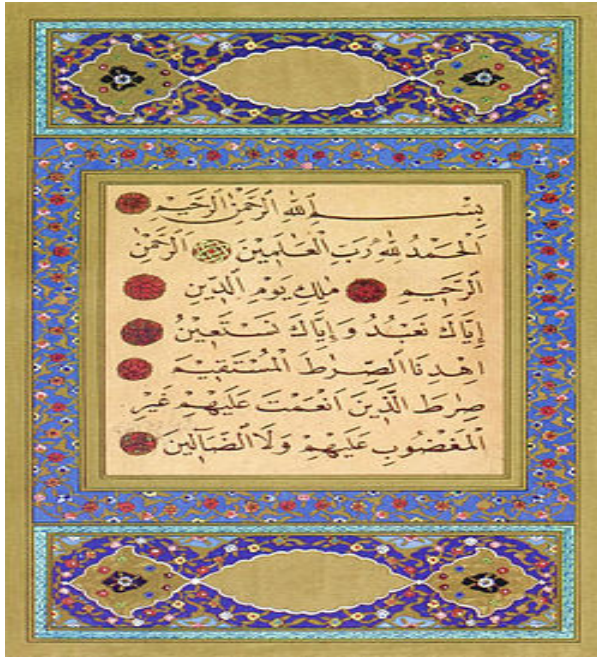 بِسْمِ ٱللهِ ٱلرَّحْمٰنِ ٱلرَّحِيمِ
اَلْحَمْدُ لِلهِ رَبِّ الْعَالَمِينَ اَلرَّحْمٰنِ
الرَّحِيمِ مٰلِكِ يَوْمِ الدِّينِ
إِيَّاكَ نَعْبُدُ وَإِيَّاكَ نَسْتَعِينُ
اِهْدِنَا الصِّرٰطَ الْمُسْتَقِيمَ
صِرٰطَ الَّذِينَ اَنْعَمْتَ عَلَيْهِمْ غَيْرِ
الْمَغْضُوبِ عَلَيْهِمْ وَلَا الضَّآلِّينَ